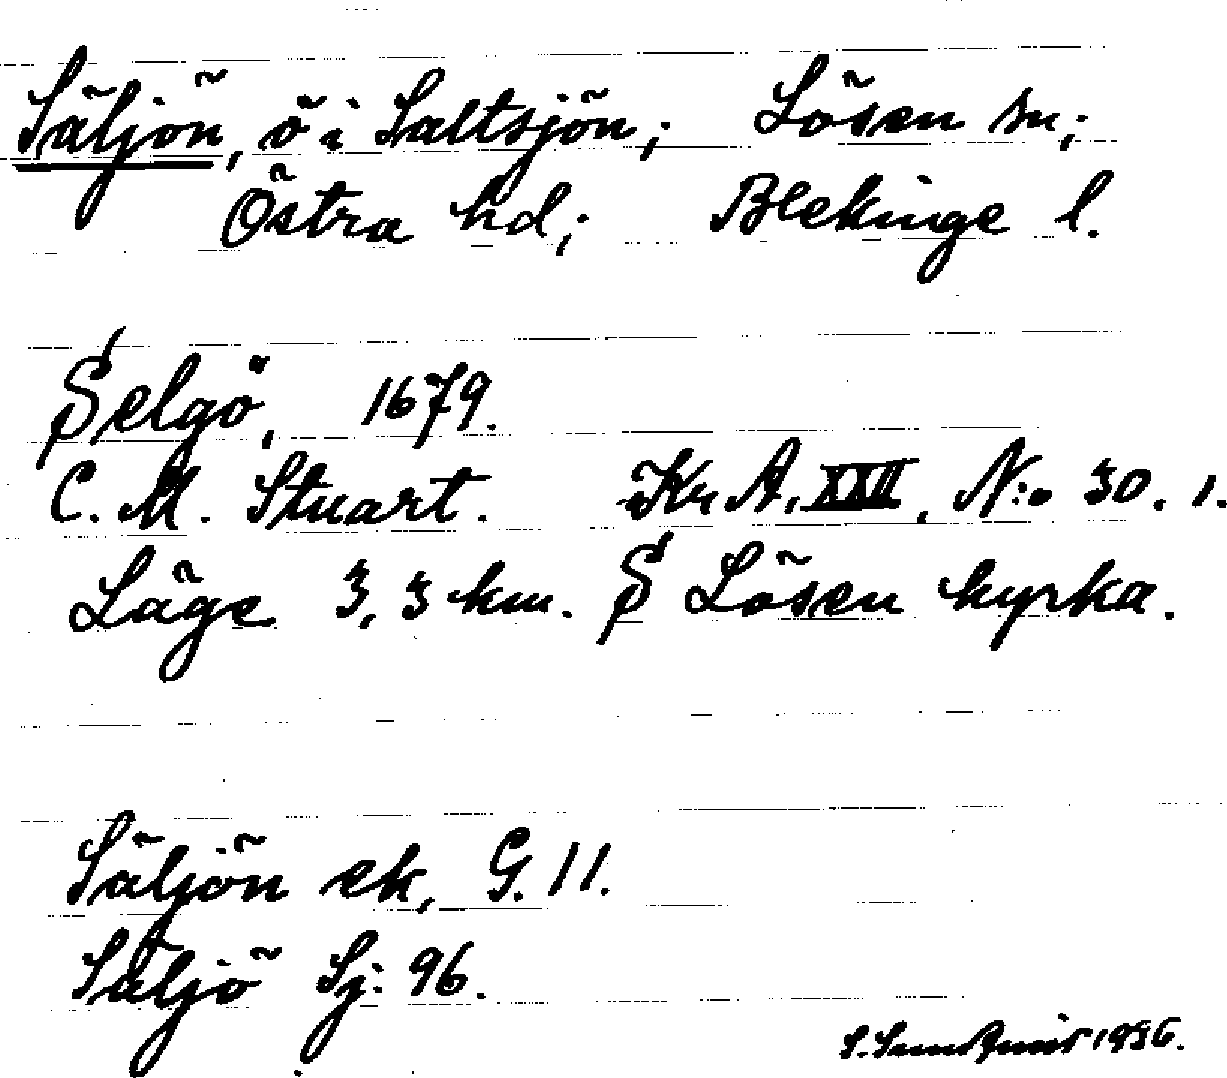 Säljön, ö i Saltsjön; Lösen sn;
Östra hd; Blekinge l.
Selgö, 1679.
C. M. Stuart. Kr A, XXII, N:o 30. 1.
Läge 3,3 km. S Lösen kyrka.
Säljön ek, G. 11.
Säljö Sj: 96.
S. Sundqvist 1936.